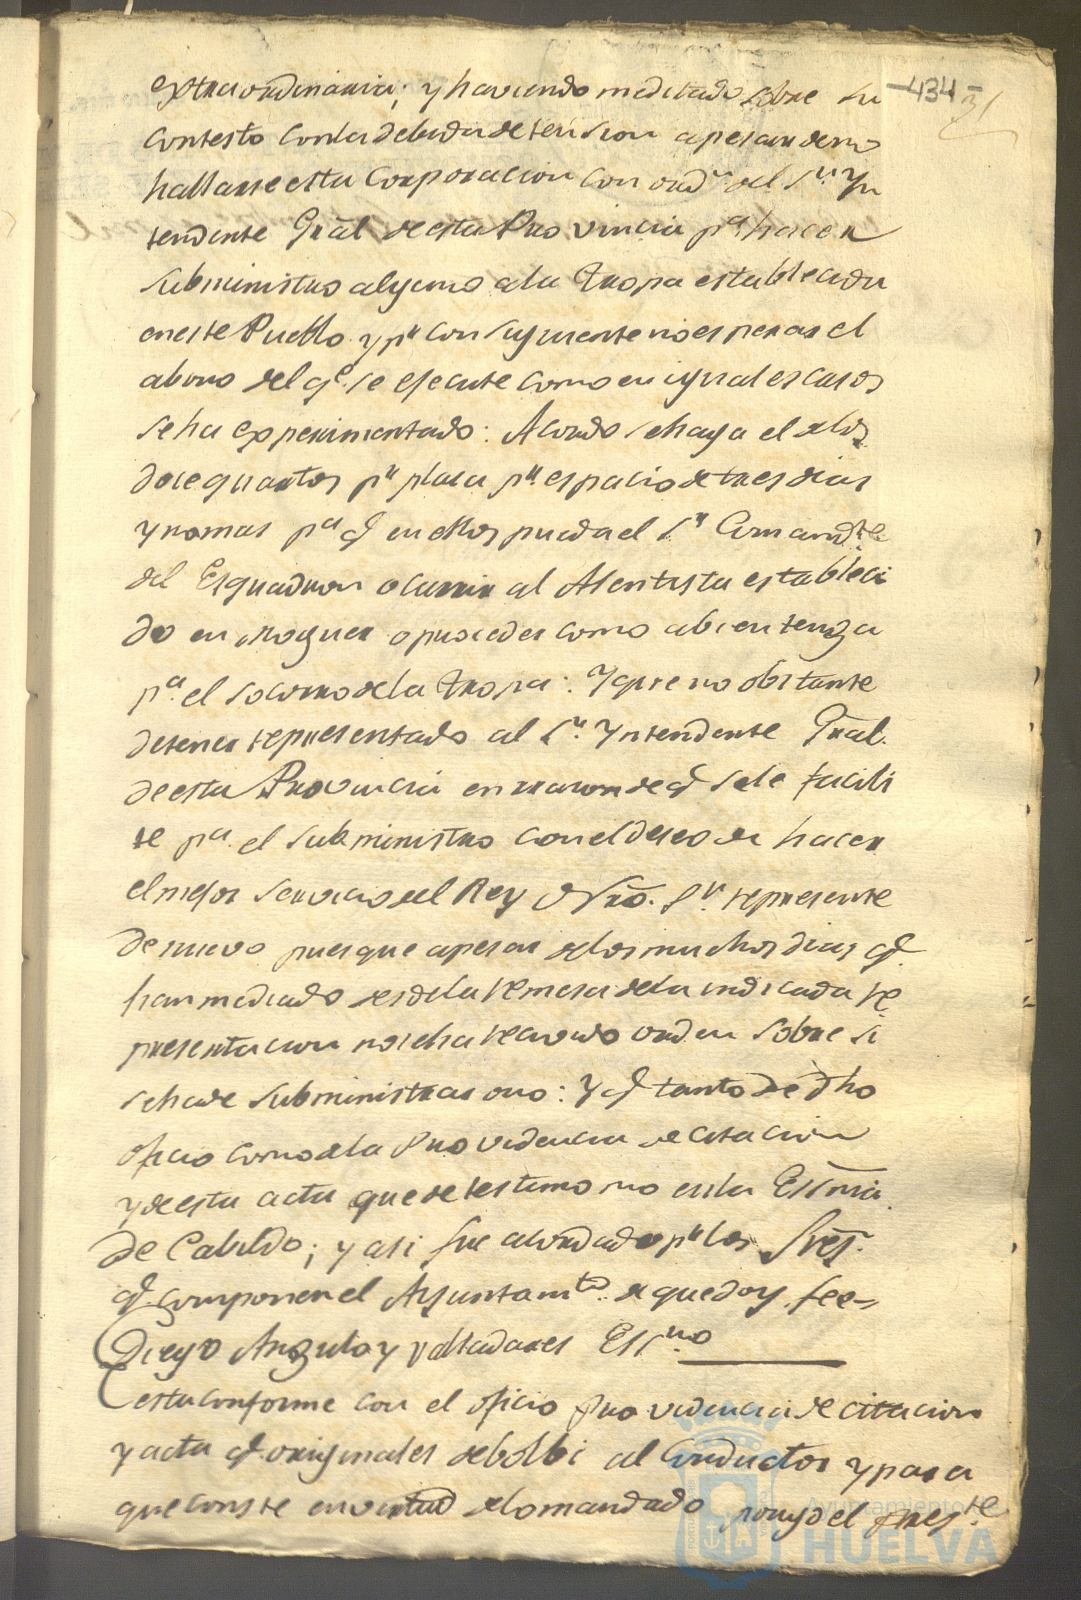 -434-
extraordinaria; y haviendo meditado sobre su
contesto con la debida detension apesar de no
hallarse esta Corporacion con ordn. del Sr. Yn
tendente Gral de esta Provincia pa. hacer
subministro alguno a la tropa establecida
en este Pueblo y pr. consiguiente no esperar el
abono del qe. se efecute como en iguales casos
se ha experimentado: Acordo se haga el de los
doce quartos pr. plasa pr. espacio de tres dias
y no mas pa. q. en ellos pueda el Sr. Comandte
del Esquadron ocurrir al Asentista estableci
do en Moguer o proceder como abien tenga
pa. el socorro de la tropa: Y que no obstante
de tener representado al Sr. Yntendente Gral.
de esta Provincia en rason de q. se le facili
te pa. el subministro con el deseo de hacer
el mejor servicio del Rey Nro. Sr. represente
de nuevo pues que apesar de los muchos dias q.
han mediado desde la remesa de la indicada re
presentacion no se ha recivido orden sobre si
se ha de subministrar o no: Y q. tanto de dho
oficio como de la Providencia de citacion
y de esta acta quede testimonio en la Essnia.
de Cabildo; y asi fue acordado pr los Sres.
q. componen el Ayuntamto. de que doy fee-
Diego Angulo y Valladares Essno
Esta conforme con el oficio providencia de citacion
y acta q. originales debolbi al Conductor y para
que conste en virtud de lo mandado pongo el preste
Ayuntamiento de
HUELVA